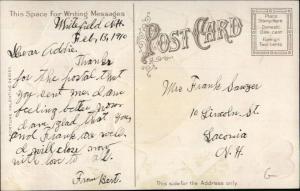 This Space for Writing Messages
Whitefield N.H.
Feb. 13, 1910
Dear Addie.
Thanks
for the postal that
you sent me I am
feeling better now
I am glad that you
and Frank are well
I will close now
with love to all.
From Bert.
POST CARD
Place
Stamp Here
Domestic
One Cent
Foreign
Two Cents
Mrs Frank Sawyer
10 Lincoln St.
Laconia
N. H.
This side for the Address only.
G